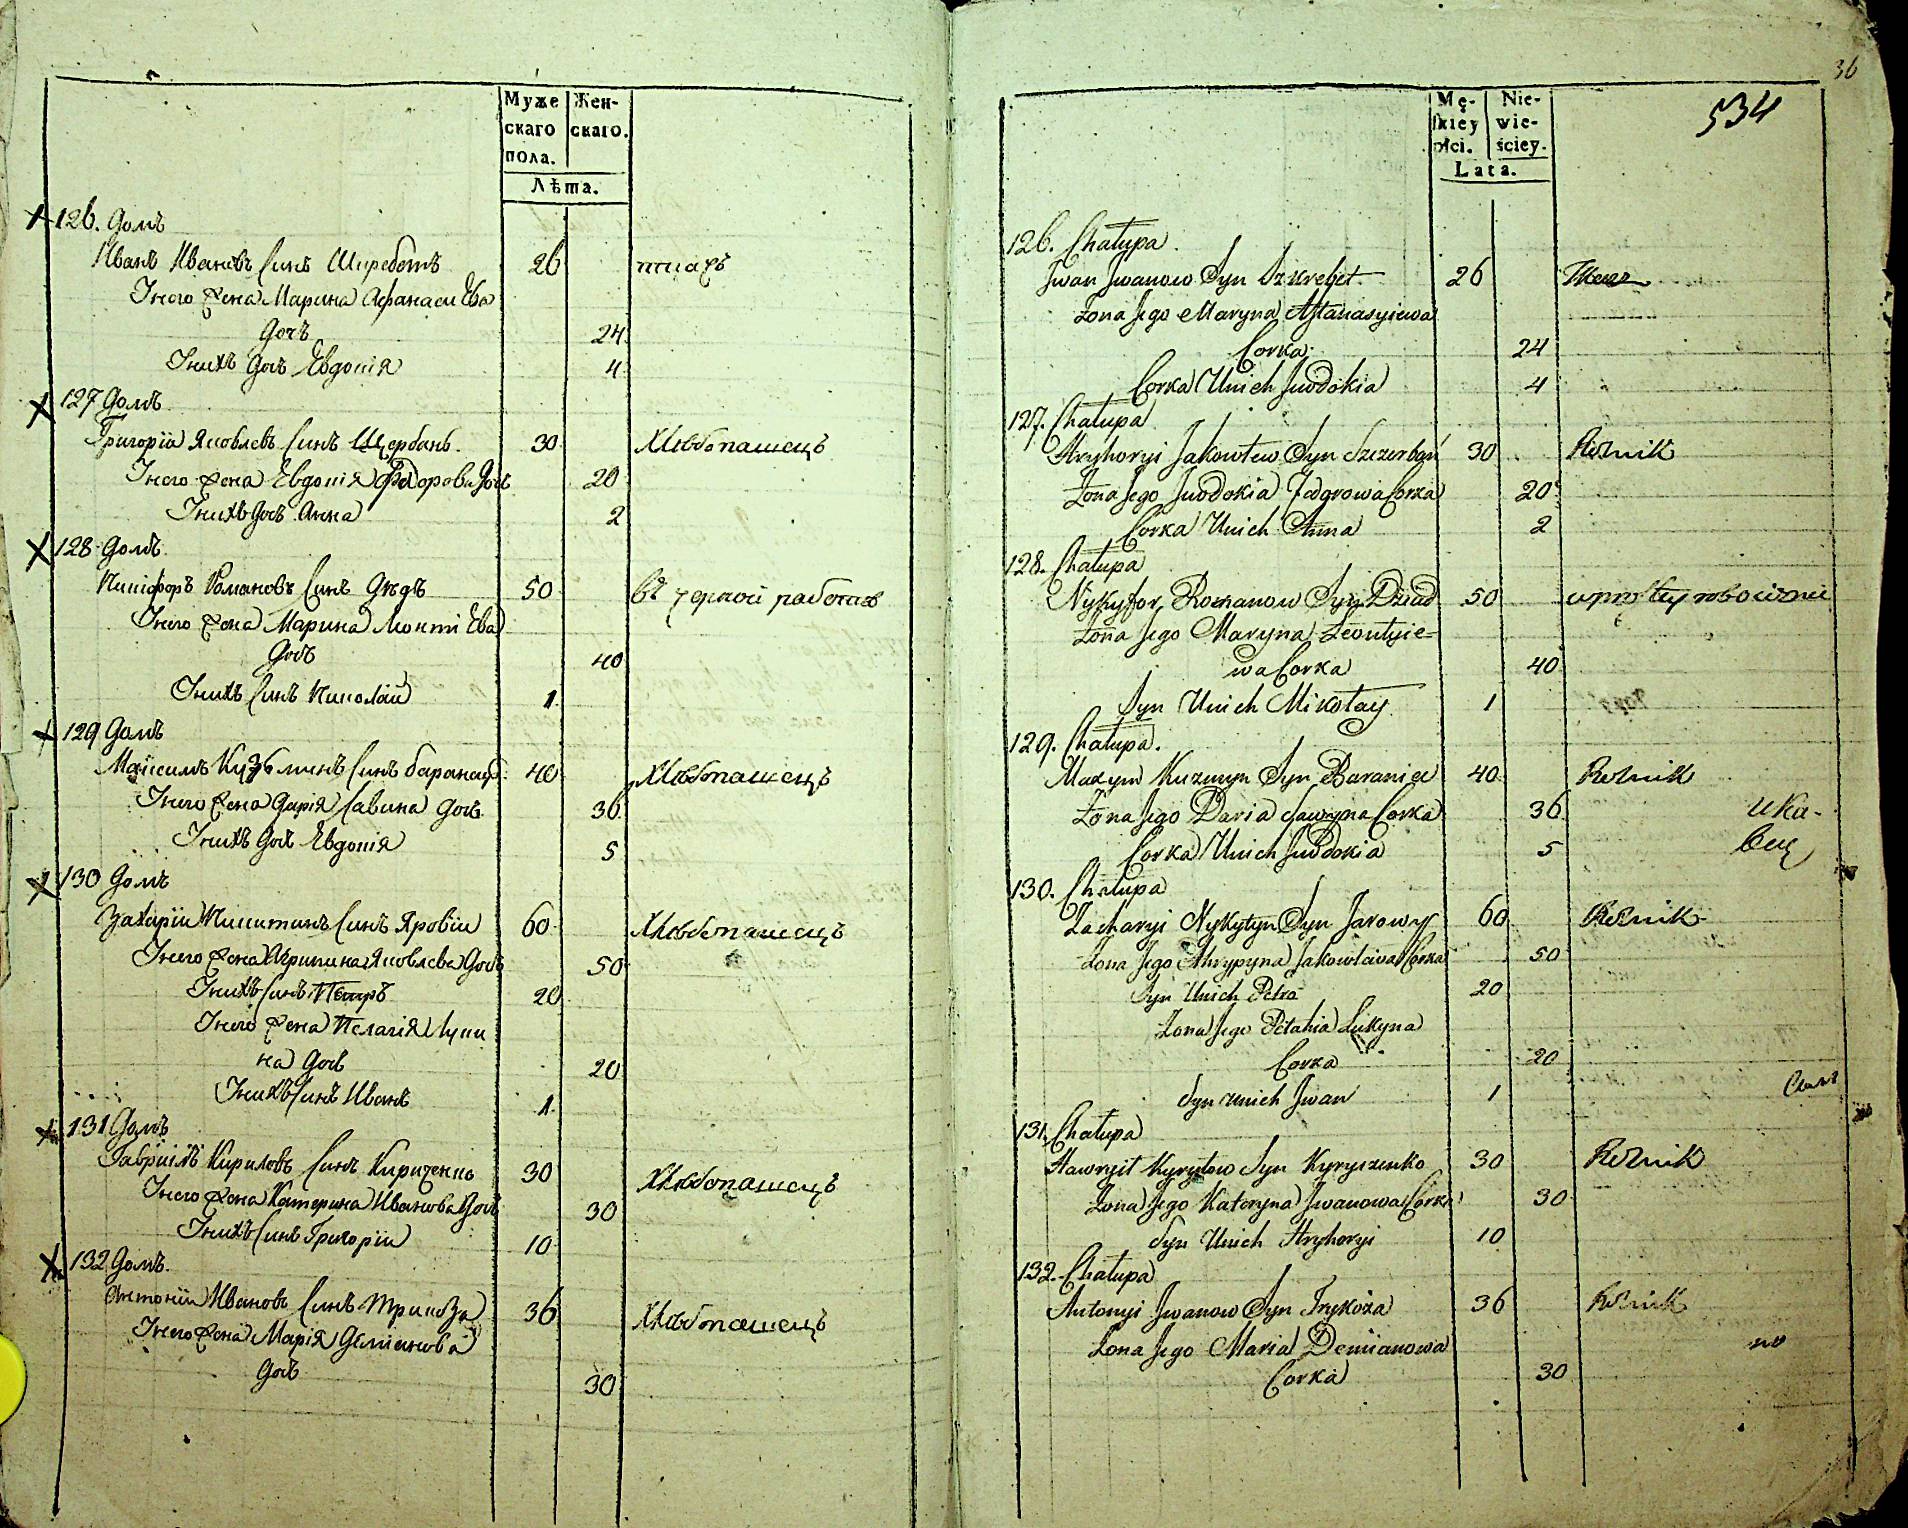 Муже Жен-
скаго скаго.
пола.
Лѣта.
126. Домъ
Иванъ Ивановъ Синъ Шкребетъ 26 ткачъ
Эного Жена Марина Афанаси Ева
Дочъ 24
Энихъ Дочъ Евдокія 4
127 Домъ
Григорій Яковлевъ Синъ Щербань 30 Хлѣбопашецъ
Эного Жена Евдокія Федорова Дочъ 20
Энихъ Дочъ Анна 2
128 Домъ
Никифоръ Романовъ Синъ Дѣдъ 50 въ черной работѣ
Эного Жена Марина Леонті Ева
Дочъ 40
Энихъ Синъ Николай 1
129 Домъ
Максимъ Кузьминъ Синъ Баранецъ 40 Хлѣбопашецъ
Эного Жена Дарія Савина Дочъ 36
Энихъ Дочъ Евдокія 5
130 Домъ
Захарій Никитинъ Синъ Яровій 60 Хлѣбопашецъ
Эного Жена Агрипина Яковлева Дочъ 50
Энихъ Синъ Петръ 20
Эного Жена Пелагія Луки
на Дочъ 20
Энихъ Синъ Иванъ 1
131 Домъ
Гавріилъ Кириловъ Синъ Кириченко 30 Хлѣбопашецъ
Эного Жена Катерина Иванова Дочъ 30
Энихъ Синъ Григорій 10
132 Домъ
Антоній Ивановъ Синъ Трикоза 36 Хлѣбопашецъ
Эного Жена Марія Деміанова
Дочъ 30
36
534
Mę- Nie-
skiey wie-
płci. ściey.
Lata.
126. Chałupa
Jwan Jwanow Syn Szkrebet 26 Tkacz
Żona Jego Maryna Aftanasyiewa
Corka 24
Corka Unich Jwdokia 4
127. Chałupa
Hryhoryi Jakowlew Syn Szczerbań 30 Rolnik
Żona Jego Jwdokia Fedorowa Corka 20
Corka Unich Anna 2
128. Chałupa
Nykyfor Romanow Syn Dziad 50 w prostey robociznie
Żona Jego Maryna Leontyie=
wa Corka 40
Syn Unich Mikołay 1
129. Chałupa.
Maxym Kuzmyn Syn Baraniec 40 Rolnik
Żona Jego Daria Sawyna Corka 36
Corka Unich Jwdokia 5
130. Chałupa
Zacharyi Nykytyn Syn Jarowy 60 Rolnik
Żona Jego Ahrypyna Jakowlewa Corka 50
Syn Unich Petro 20
Żona Jego Pelahia Lukyna
Corka 20
Syn Unich Jwan 1
131. Chałupa
Hawryił Kyryłow Syn Kyryczenko 30 Rolnik
Żona Jego Kateryna Jwanowa Corka 30
Syn Unich Hryhoryi 10
132. Chałupa
Antonyi Jwanow Syn Trykoza 36 Rolnik
Żona Jego Maria Demianowa
Corka 30